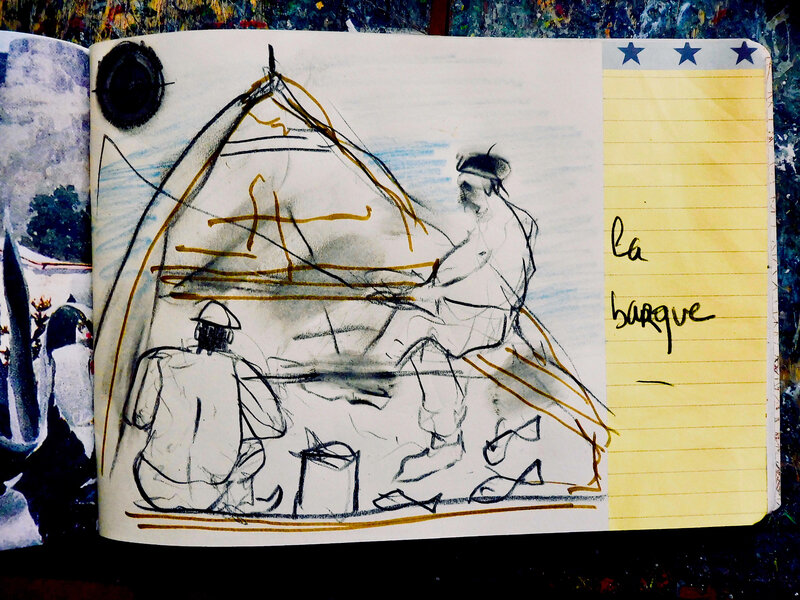 la
barque